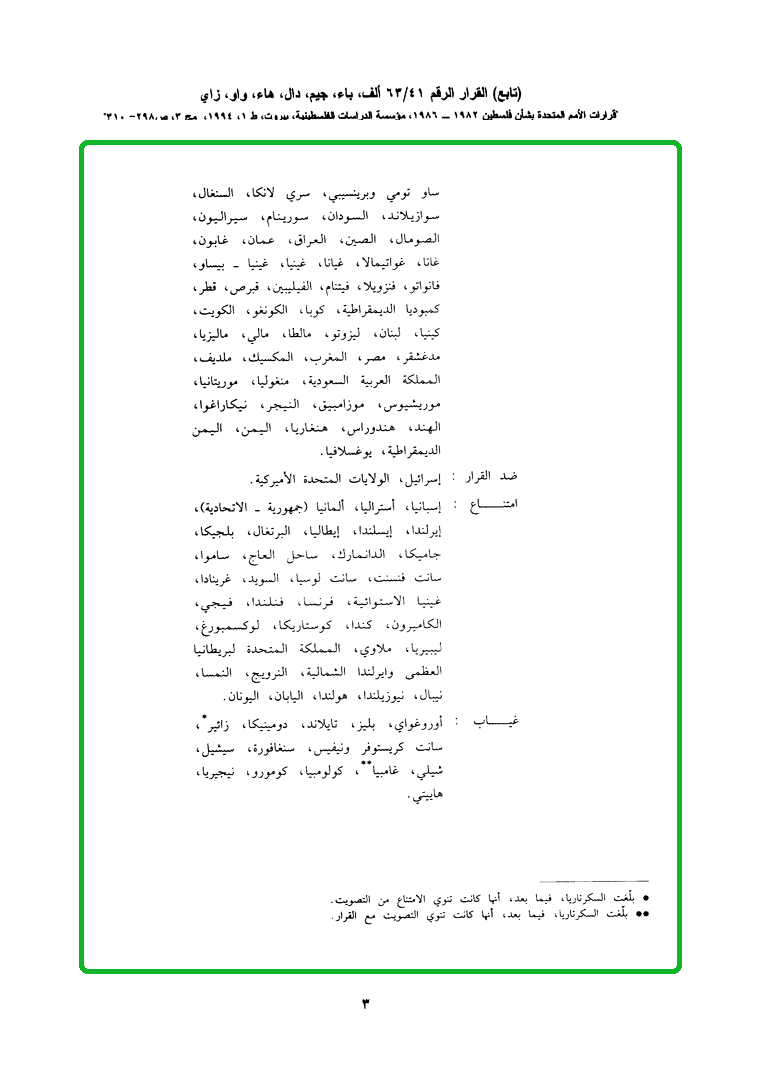 (تابع) القرار الرقم ٦٣/٤١ ألف، باء، جيم، دال، هاء، واو، زاي
"قرارات الأمم المتحدة بشأن فلسطين ١٩٨٢ ــ ١٩٨٦، مؤسسة الدراسات الفلسطينية، بيروت، ط ١، ١٩٩٤، مج ٣، ص٢٩٨- ٣١٠"
ساو تومي وبرينسيبي، سري لانكا، السنغال،
سوازيلاند، السودان، سورينام، سيراليون،
الصومال، الصين، العراق، عمان، غابون،
غانا، غواتيمالا، غيانا، غينيا، غينيا ـ بيساو،
فانواتو، فنزويلا، فيتنام، الفيليبين، قبرص، قطر،
كمبوديا الديمقراطية، كوبا، الكونغو، الكويت،
كينيا، لبنان، ليزوتو، مالطا، مالي، ماليزيا،
مدغشقر، مصر، المغرب، المكسيك، ملديف،
المملكة العربية السعودية، منغوليا، موريتانيا،
موريشيوس، موزامبيق، النيجر، نيكاراغوا،
الهند، هندوراس، هنغاريا، اليمن، اليمن
الديمقراطية، يوغسلافيا.
ضد القرار : إسرائيل، الولايات المتحدة الأميركية.
امتنـــــاع : إسبانيا، أستراليا، ألمانيا (جمهورية ـ الاتحادية)،
إيرلندا، إيسلندا، إيطاليا، البرتغال، بلجيكا،
جاميكا، الدانمارك، ساحل العاج، ساموا،
سانت فنسنت، سانت لوسيا، السويد، غرينادا،
غينيا الاستوائية، فرنسا، فنلندا، فيجي،
الكاميرون، كندا، كوستاريكا، لوكسمبورغ،
ليبيريا، ملاوي، المملكة المتحدة لبريطانيا
العظمى وايرلندا الشمالية، النرويج، النمسا،
نيبال، نيوزيلندا، هولندا، اليابان، اليونان.
غيـــــاب : أوروغواي، بليز، تايلاند، دومينيكا، زائير*،
سانت كريستوفر ونيفيس، سنغافورة، سيشيل،
شيلي، غامبيا**، كولومبيا، كومورو، نيجيريا،
هاييتي.
● بلّغت السكرتاريا، فيما بعد، أنها كانت تنوي الامتناع من التصويت.
●● بلّغت السكرتاريا، فيما بعد، أنها كانت تنوي التصويت مع القرار.
٣